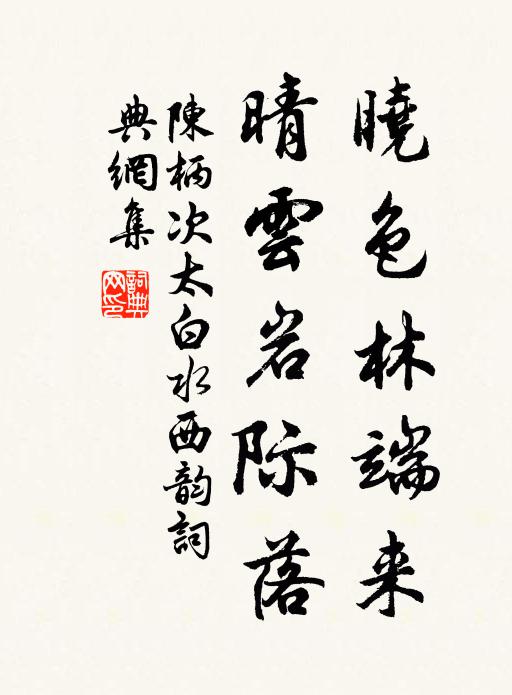 曉色林端来
晴雲岩际落
陳柄次太白水西韵詞
典網集
詞典网印